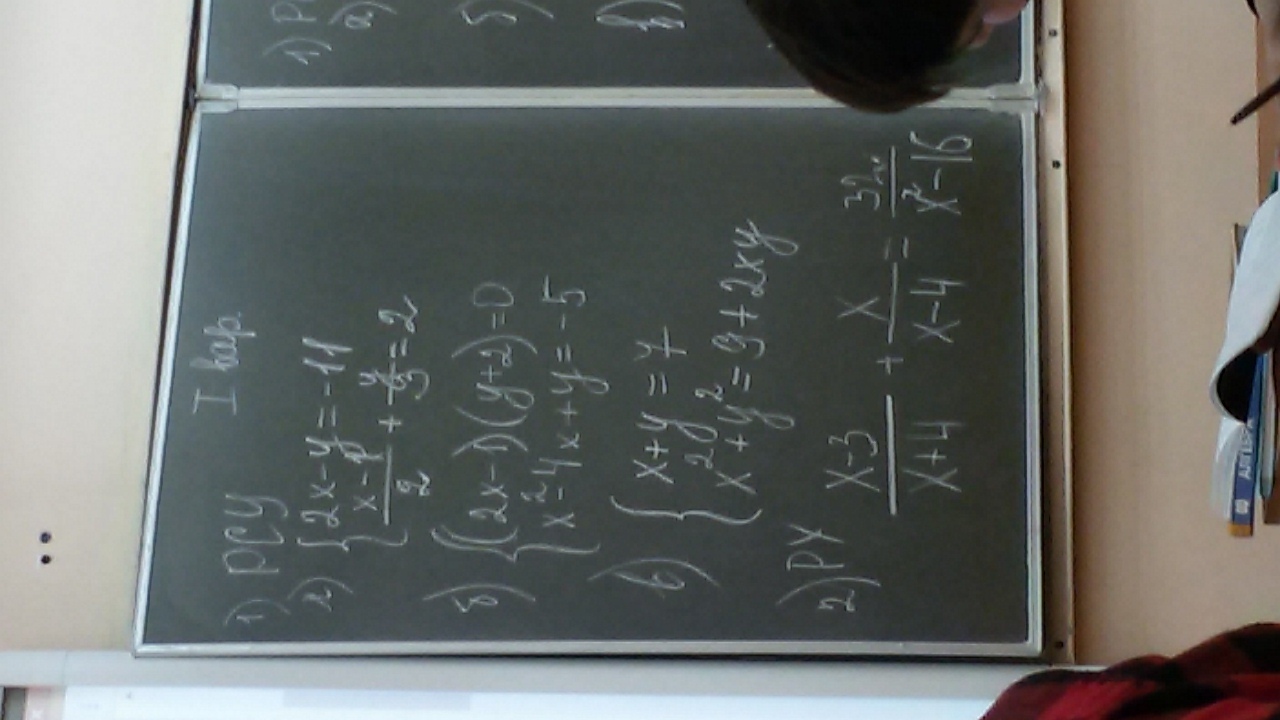 I вар.
1) РСУ
а) { 2x-y=-11
(x-1)/2 + y/3 = 2
б) { (2x-1)(y+2)=0
x²-4x+y=-5
в) { x+y=7
x²+y²=9+2xy
2) РУ
(x-3)/(x+4) + x/(x-4) = 32/(x²-16)
1) Р
а)
б)
в)